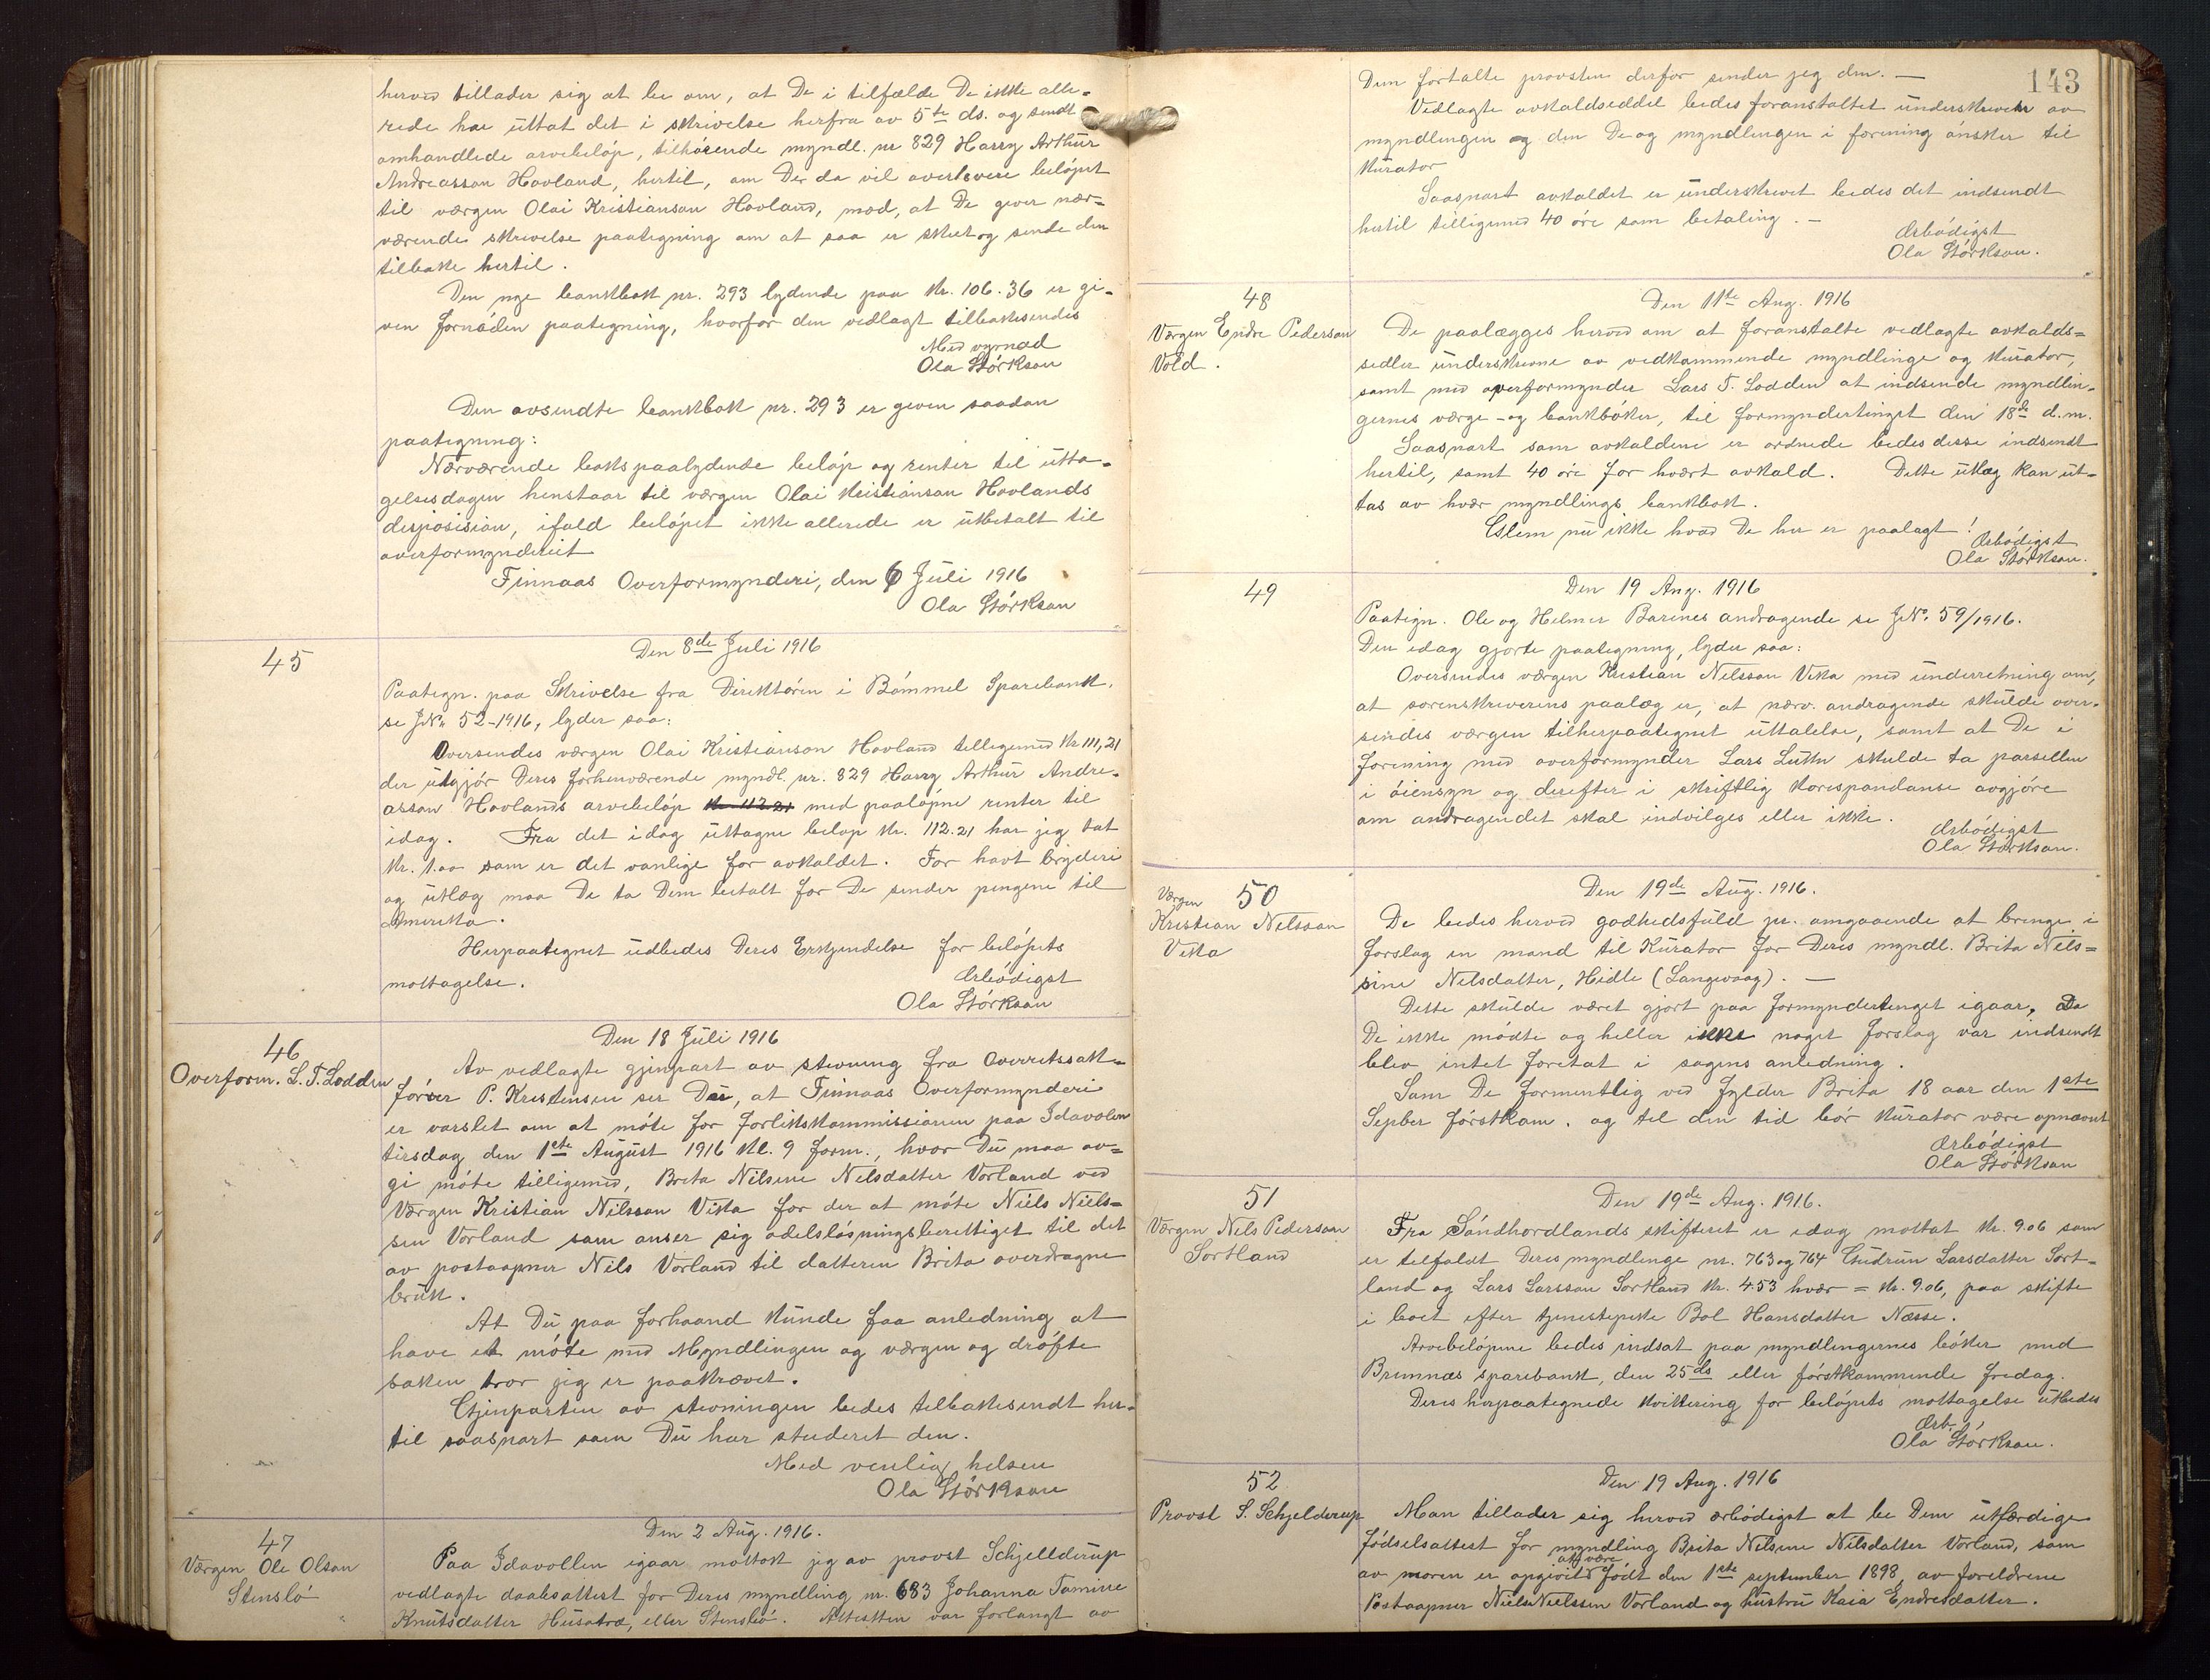 herved tillader sig at be om, at De i tilfælde De ikke alle-
rede har uttat det i skrivelse herfra av 5te ds. og sendt
omhandlede arvebeløp, tilhørende myndl. nr 829 Harry Arthur
Andreasson Hovland, hertil, om De da vil overlevere beløpet
til værgen Olai Kristianson Hovland, mod, at De giver nær-
værende skrivelse paategning om at saa er skeet og sende den
tilbake hertil.
Den nye bankbok nr. 293 lydende paa Kr. 106.36 er gi-
ven fornøden paategning, hvorfor den vedlagt tilbakesendes
Med vyrnad
Ola Størkson
Den avsendte bankbok nr. 293 er given saadan
paategning:
Nærværende boks paalydende beløp og renter til utta-
gelsesdagen henstaar til værgen Olai Kristianson Hovlands
disposision, ifald beløpet ikke allerede er utbetalt til
overformynderiet
Finnaas Overformynderi, den 6 Juli 1916
Ola Størkson
45
Den 8de Juli 1916
Paategn. paa Skrivelse fra Direktøren i Bømmel Sparebank,
se JNr 52-1916, lyder saa:
Oversendes værgen Olai Kristianson Hovland tilligemed Kr 111,21
der utgjør Deres forhenværende myndl. nr. 829 Harry Arthur Andre-
asson Hovlands arvebeløp Kr 112.21 med paaløpne renter til
idag. Fra det idag uttagne beløp Kr. 112.21 har jeg tat
Kr. 1.00 som er det vanlige for avkaldet. For havt bryderi
og utlæg maa De ta Dem betalt før De sender pengene til
Amerika.
Herpaategnet udbedes Deres Erkjendelse for beløpets
mottagelse.
Ærbødigst
Ola Størkson
46
Overform. L. T. Lodden
Den 18 Juli 1916
Av vedlagte gjenpart av stevning fra Overretssak-
fører P. Kristensen ser Du, at Finnaas Overformynderi
er varslet om at møte for forlikskommissionen paa Idavolen
tirsdag den 1ste August 1916 kl. 9 form., hvor Du maa av-
gi møte tilligemed, Brita Nilsine Nilsdatter Vorland ved
Værgen Kristian Nilsson Vika for der at møte Niels Niels-
sen Vorland som anser sig odelsløsningsberettiget til det
av postaapner Nils Vorland til datteren Brita overdragne
bruk.
At Du paa forhaand kunde faa anledning at
have et møte med Myndlingen og værgen og drøfte
saken tror jeg er paakrævet.
Gjenparten av stevningen bedes tilbakesendt her-
til saasnart som Du har studeret den.
Med venlig helsen
Ola Størkson
47
Værgen Ole Olson
Stenslø
Den 2 Aug. 1916.
Paa Idavollen igaar mottok jeg av provst Schjelderup
vedlagte daabsattest for Deres myndling nr. 683 Johanna Tamine
Knutsdatter Husatræ, eller Stenslø. Attesten var forlangt av
143
Dem fortalte provsten derfor sender jeg den. —
Vedlagte avkaldseddel bedes foranstaltet underskreven av
myndlingen og den De og myndlingen i forening ønsker til
Kurator
Saasnart avkaldet er underskrevet bedes det indsendt
hertil tilligemed 40 øre som betaling. —
Ærbødigst
Ola Størkson.
48
Værgen Endre Pederson
Vold.
Den 11te Aug. 1916
De paalægges herved om at foranstalte vedlagte avkalds-
sedler underskrevne av vedkommende myndlinge og Kurator,
samt med overformynder Lars T. Lodden at indsende myndlin-
gernes værge- og bankbøker, til formyndertinget den 18de d.m.
Saasnart som avkaldene er ordnede bedes disse indsendt
hertil, samt 40 øre for hvært avkald. Dette utlæg kan ut-
tas av hvær myndlings bankbok.
Glem nu ikke hvad De her er paalagt!
Ærbødigst
Ola Størkson.
49
Den 19 Aug. 1916
Paategn. Ole og Helmer Barines andragende se JNo. 59/1916.
Den idag gjorte paategning, lyder saa:
Oversendes værgen Kristian Nilsson Vika med underretning om,
at sorenskriverens paalæg er, at nærv. andragende skulde over-
sendes værgen til herpaategnet uttalelse, samt at De i
forening med overformynder Lars Lütth skulde ta parsellen
i øiensyn og derefter i skriftlig korespondanse avgjøre
om andragendet skal indvilges eller ikke.
Ærbødigst
Ola Størkson.
50
Værgen
Kristian Nilsson
Vika
Den 19de Aug. 1916.
De bedes herved godhedsfuld pr. omgaaende at bringe i
forslag en mand til Kurator for Deres myndl. Brita Nils-
sine Nilsdatter, Hidle (Langevaag). —
Dette skulde været gjort paa formyndertinget igaar. Da
De ikke mødte og heller ikke noget forslag var indsendt
blev intet foretat i sagens anledning.
Som De formentlig ved fylder Brita 18 aar den 1ste
Sepber førstkom. og til den tid bør Kurator være opnævnt
Ærbødigst
Ola Størkson
51
Værgen Nils Pederson
Sortland
Den 19de Aug. 1916.
Fra Søndhordlands skifteret er idag mottat Kr. 9.06 som
er tilfaldt Deres myndlinge nr. 763 og 764 Gudrun Larsdatter Sort-
land og Lars Larsson Sortland Kr. 4.53 hvær = Kr. 9.06, paa skifte
i boet efter tjenestepike Bol Hansdatter Næsse.
Arvebeløpene bedes indsat paa myndlingernes bøker med
Bremnæs sparebank, den 25 ds eller førstkommende fredag.
Deres herpaategnede kvittering for beløpets mottagelse utbedes
Ærb.
Ola Størkson.
52
Provst S. Schjelderup
Den 19 Aug. 1916
Man tillader sig herved ærbødigst at be Dem utfærdige
fødselsattest for myndling Brita Nilsine Nilsdatter Vorland, som
av moren er opgivet at være født den 1ste september 1898, av forældrene
Postaapner Niels Nielssen Vorland og hustru Kaia Endresdatter.